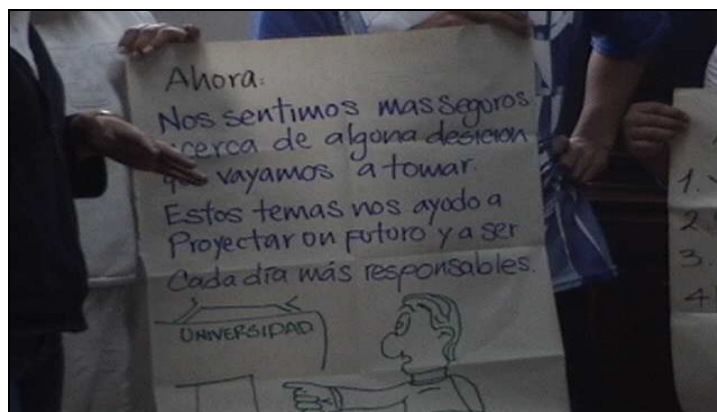 Ahora:
Nos sentimos mas seguros
acerca de alguna desicion
que vayamos a tomar.
Estos temas nos ayodo a
Proyectar on futuro y a ser
Cada día más responsables.
UNIVERSIDAD
1.
2
3.
4